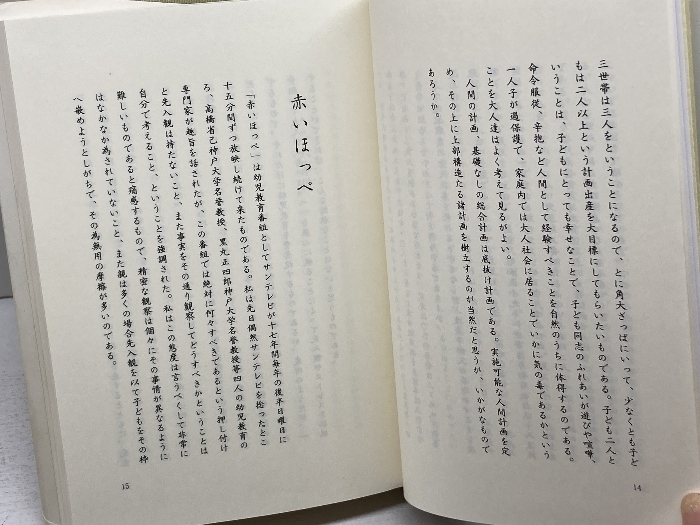 三世帯は三人をということになるので、とに角大ざっぱにいって、少なくとも子ど
もは二人以上という計画出産を大目標にしてもらいたいものである。子ども二人と
いうことは、子どもにとっても幸せなことで、子ども同志のふれあいが遊びや喧嘩、
命令服従、辛抱など人間として経験すべきことを自然のうちに体得するのである。
一人子が過保護で、家庭内では大人社会に居ることでいかに気の毒であるかという
ことを大人達はよく考えて見るがよい。
人間の計画、基礎なしの総合計画は底抜け計画である。実施可能な人間計画を定
め、その上に上部構造たる諸計画を樹立するのが当然だと思うが、いかがなもので
あろうか。
14
赤いほっぺ
「赤いほっぺ」は幼児教育番組としてサンテレビが十七年間毎年の後半日曜日に
十五分間ずつ放映し続けて来たものである。私は先日偶然サンテレビを捻ったとこ
ろ、高橋省己神戸大学名誉教授、黒丸正四郎神戸大学名誉教授等四人の幼児教育の
専門家が趣旨を話されたが、この番組では絶対に何々すべきであるという押し付け
と先入観は持たないこと、また事実をその通り観察してどうすべきかということは
自分で考えること、ということを強調された。私はこの態度は言うべくして非常に
難しいものであると痛感するもので、精密な観察は個々にその事情が異なるように
はなかなか為されていないこと、また親は多くの場合先入観を以て子どもをその枠
へ嵌めようとしがちで、その為無用の摩擦が多いのである。
15